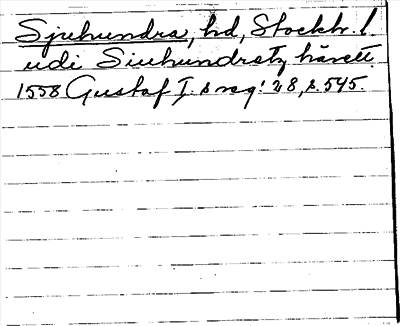 Sjuhundra, hd, Stockh. l
udi Siuhundretz härett.
1558 Gustaf I. s reg: 28, s. 545.